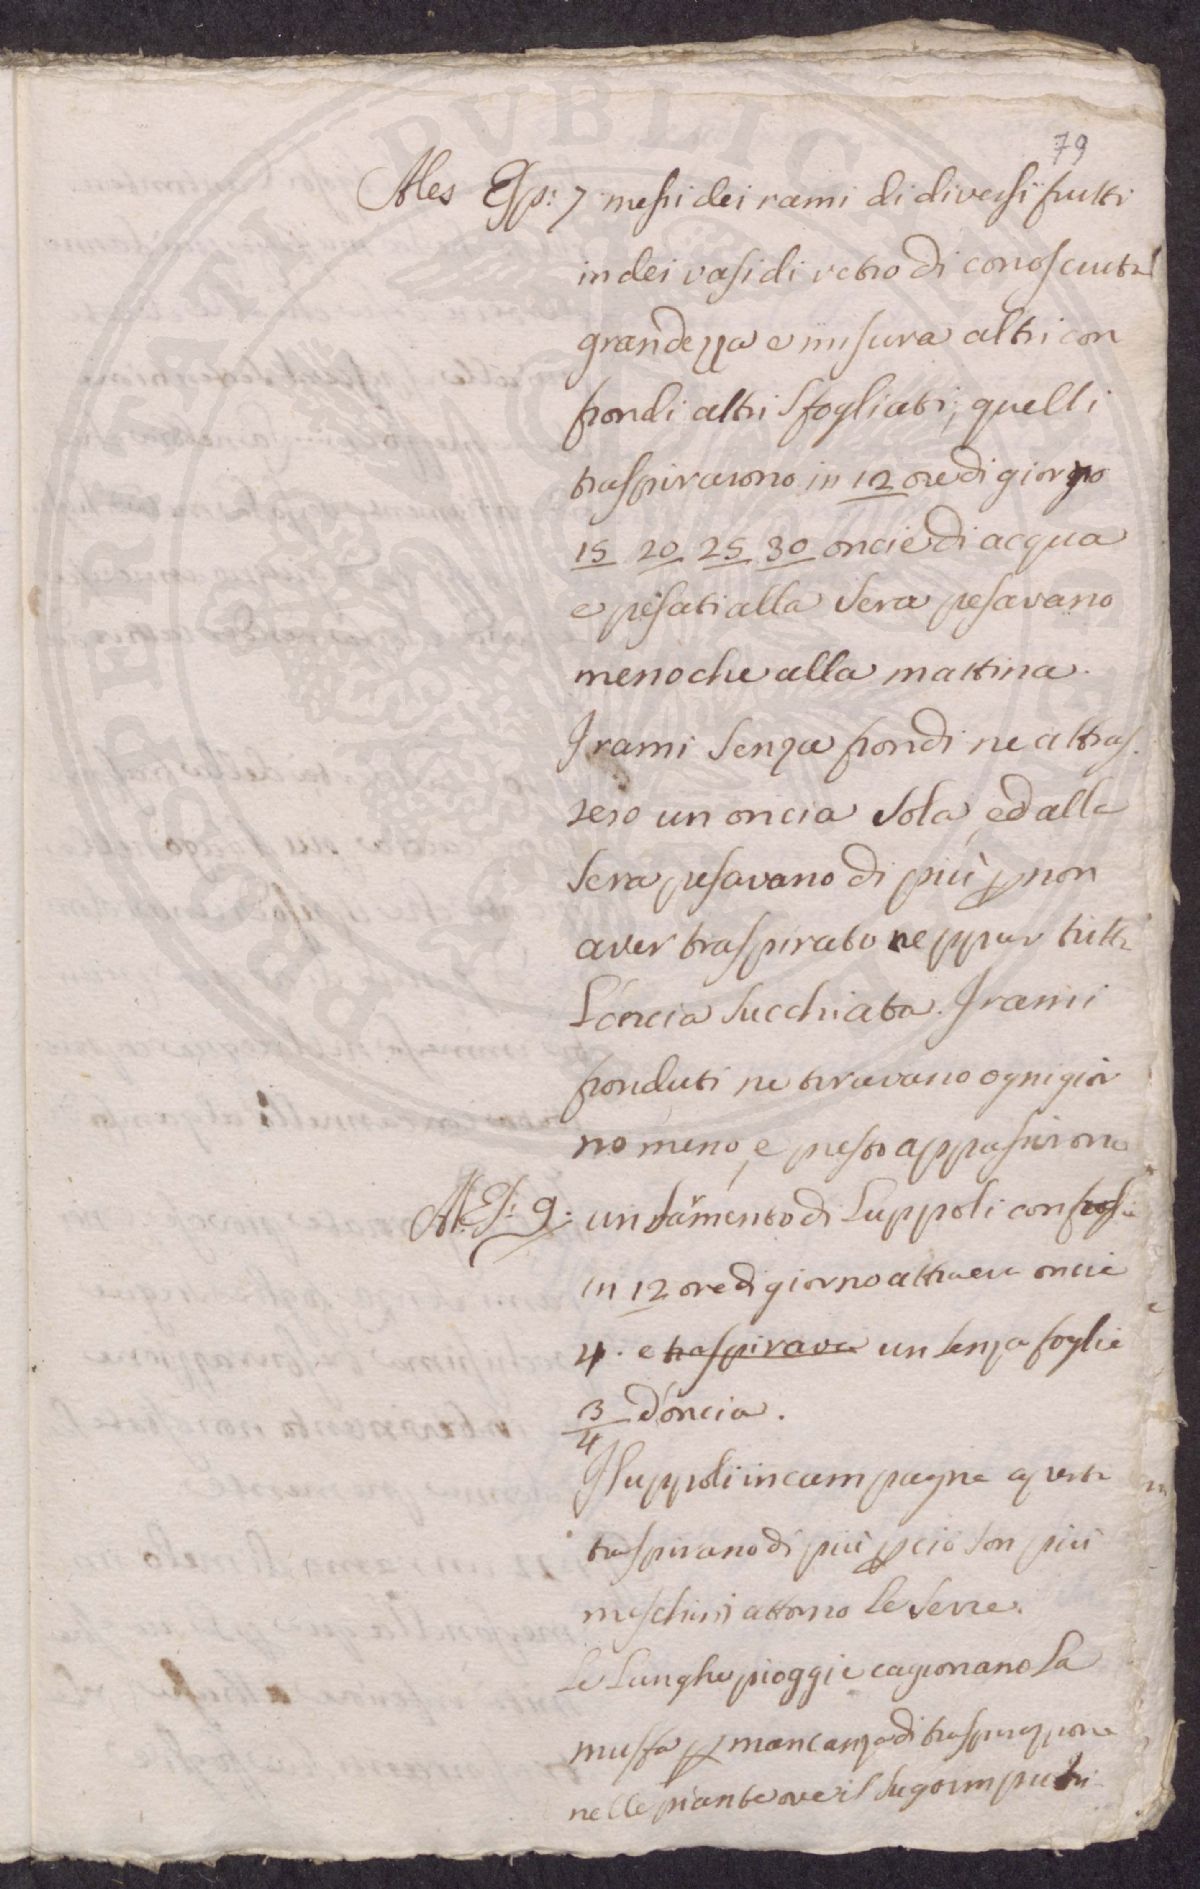 79
Ales Esp: 7 messi dei rami di diversi frutti
in dei vasi di vetro di conosciuta
grandezza e misura altri con
frondi altri sfogliati, quelli
traspirarono in 12 ore di giorno
15 20 25 30 oncie di acqua
e pesati alla sera pesavano
meno che alla mattina.
I rami senza frondi ne attras-
sero un oncia sola, ed alla
sera pesavano di più p non
aver traspirato neppur tutta
l'oncia succhiata. I rami
fronduti ne tiravano ogni gior
no meno, e presto appassirono
Al. Es: 9: un sarmento di Luppoli con
in 12 ore di giorno attraeva oncie
4. e traspirava un senza foglie
3/4 d'oncia.
I luppoli in campagna aperta
traspirano di più pciò son più
meschini attorno le serre.
Le lunghe pioggie cagionano la
muffa p mancanza di traspirazione
nelle piante ove il sugo imputri-